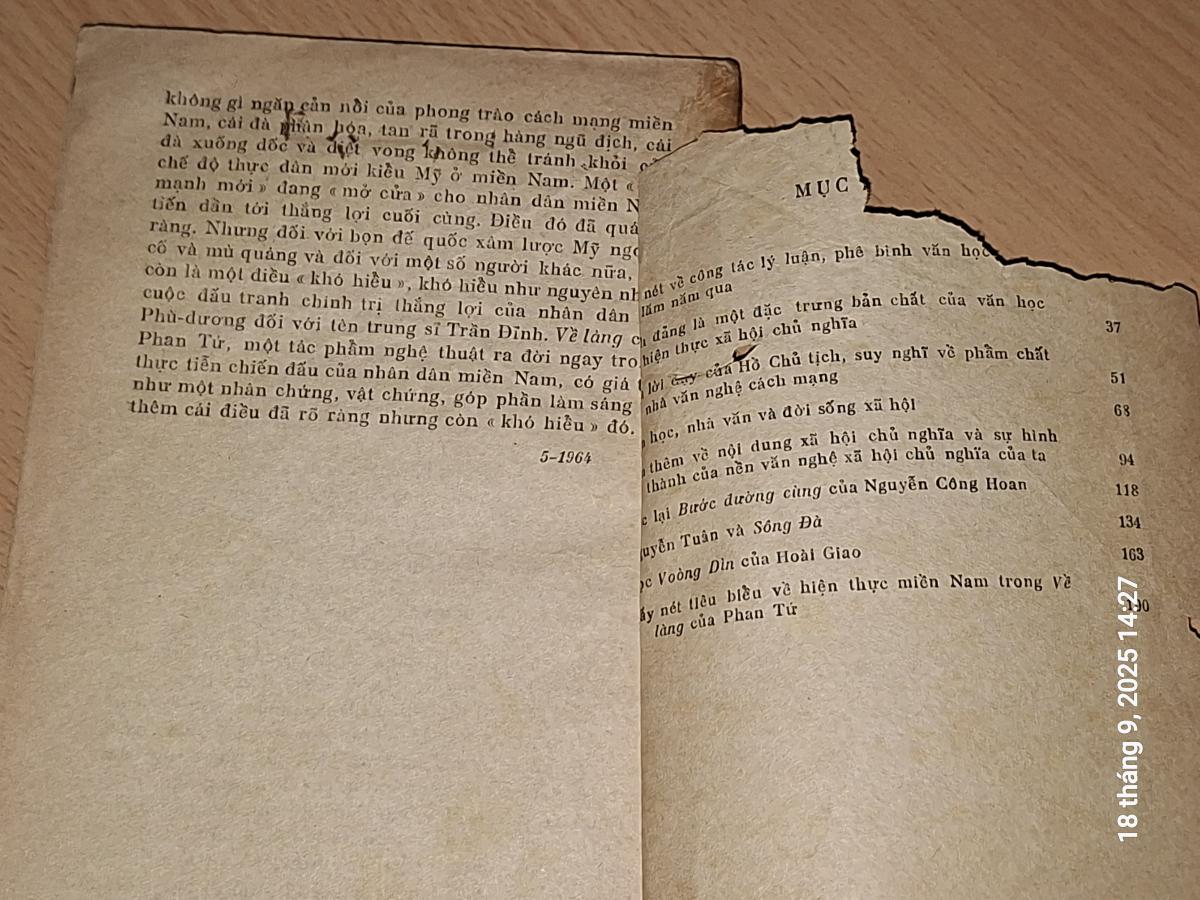 không gì ngăn cản nổi của phong trào cách mạng miền
Nam, cái đà phân hóa, tan rã trong hàng ngũ địch, cái
đà xuống dốc và diệt vong không thể tránh khỏi
chế độ thực dân mới kiểu Mỹ ở miền Nam. Một «
mạnh mới » đang « mở cửa » cho nhân dân miền N
tiến dần tới thắng lợi cuối cùng. Điều đó đã quá
ràng. Nhưng đối với bọn đế quốc xâm lược Mỹ ngo
cố và mù quáng và đối với một số người khác nữa,
còn là một điều « khó hiểu », khó hiểu như nguyên nh
cuộc đấu tranh chính trị thắng lợi của nhân dân
Phù-dương đối với tên trung sĩ Trần Đĩnh. Về làng c
Phan Tứ, một tác phẩm nghệ thuật ra đời ngay tro
thực tiễn chiến đấu của nhân dân miền Nam, có giá t
như một nhân chứng, vật chứng, góp phần làm sáng
thêm cái điều đã rõ ràng nhưng còn « khó hiểu » đó.
5-1964
MỤC
nét về công tác lý luận, phê bình văn học
lăm năm qua
đảng là một đặc trưng bản chất của văn học
hiện thực xã hội chủ nghĩa 37
lời dạy của Hồ Chủ tịch, suy nghĩ về phẩm chất
nhà văn nghệ cách mạng 51
học, nhà văn và đời sống xã hội 68
thêm về nội dung xã hội chủ nghĩa và sự hình
thành của nền văn nghệ xã hội chủ nghĩa của ta 94
c lại Bước đường cùng của Nguyễn Công Hoan 118
uyễn Tuân và Sông Đà 134
ọc Voòng Dìn của Hoài Giao 163
ấy nét tiêu biểu về hiện thực miền Nam trong Về
làng của Phan Tứ 190
18 tháng 9, 2025 14:27